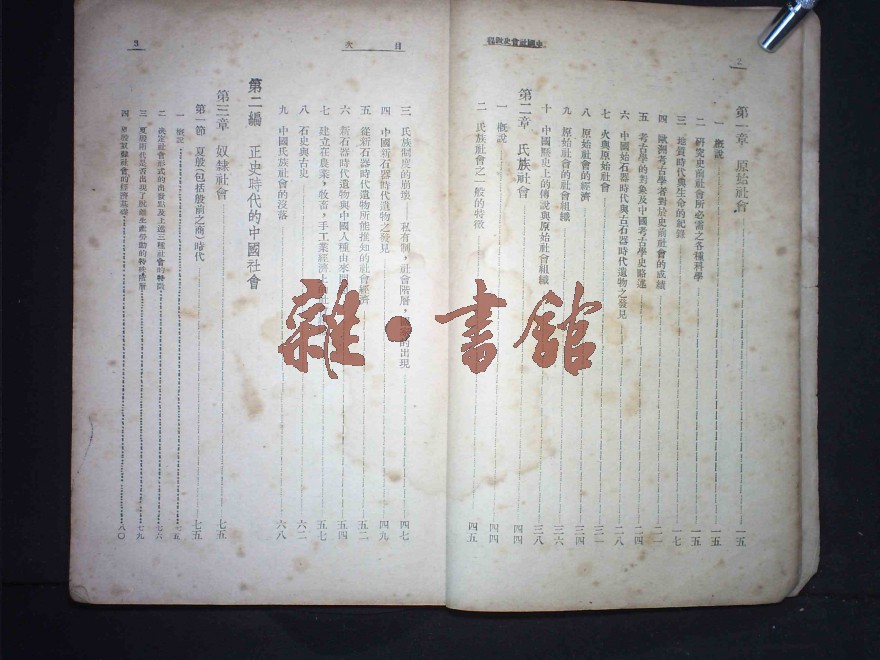 中國社會史教程
二
第一章 原始社會 一五
一 概説 一五
二 研究史前社會所必需之各種科學 一五
三 地質時代與生命的紀錄 一七
四 歐洲考古學者對於史前社會的成績 二一
五 考古學的對象及中國考古學史略述 二四
六 中國始石器時代與古石器時代遺物之發見 二八
七 火與原始社會 三一
八 原始社會的經濟 三四
九 原始社會的社會組織 三六
十 中國歷史上的傳說與原始社會組織 三八
第二章 氏族社會 四四
一 概説 四四
二 氏族社會之一般的特徵 四五
目次
3
三 氏族制度的崩壞——私有制，社會階層，的出現 四七
四 中國新石器時代遺物之發見 四九
五 從新石器時代遺物所能推知的社會經濟 五二
六 新石器時代遺物與中國人種由來問 五四
七 建立在農業，牧畜，手工業經濟上 社 五七
八 石史與古史 六二
九 中國氏族社會的沒落 六八
第二編 正史時代的中國社會
第三章 奴隸社會 七五
第一節 夏殷（包括殷前之商）時代 七五
一 概説 七五
二 決定社會形式的出發點及上述三種社會的特徵 七六
三 夏殷兩代是否出現了脫離生產勞動的特殊階層 七九
四 夏殷奴隸社會的經濟基礎 八〇
雜·書館